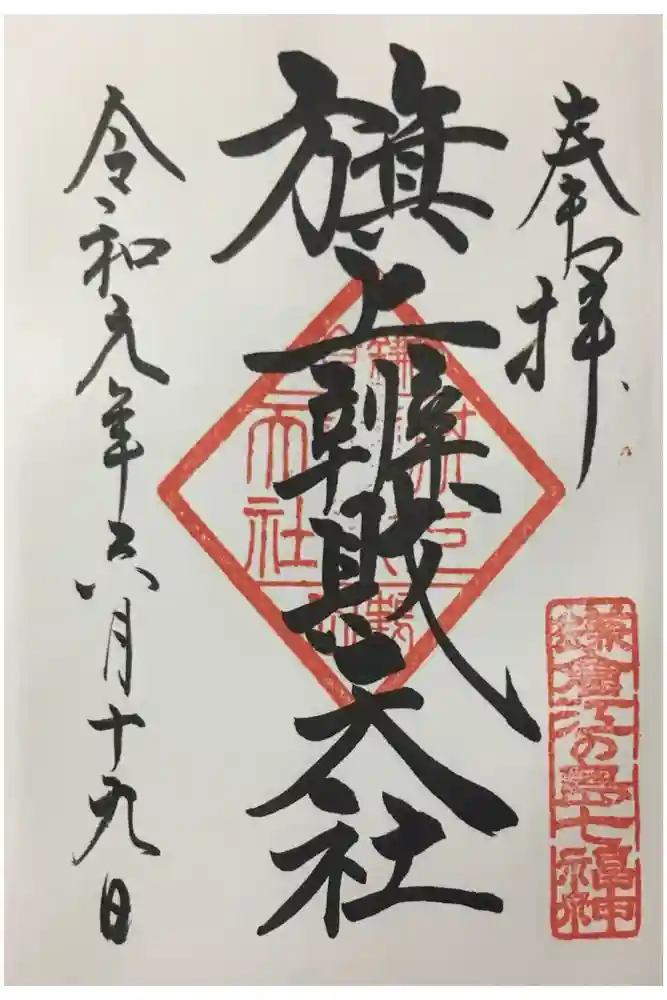 奉拝
旗上辨財天社
鎌倉江の島七福神
令和元年六月十九日